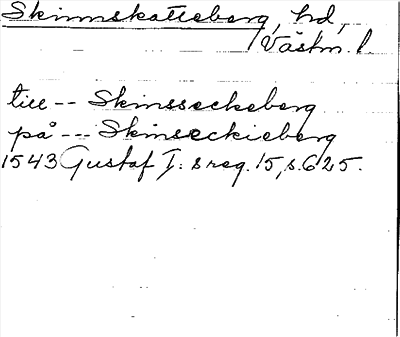 Skinnskatteberg, hd,
Västm. l.
till -- Skinsseckeberg
på --- Skinseckieberg
1543 Gustaf I: s reg. 15, s. 625.